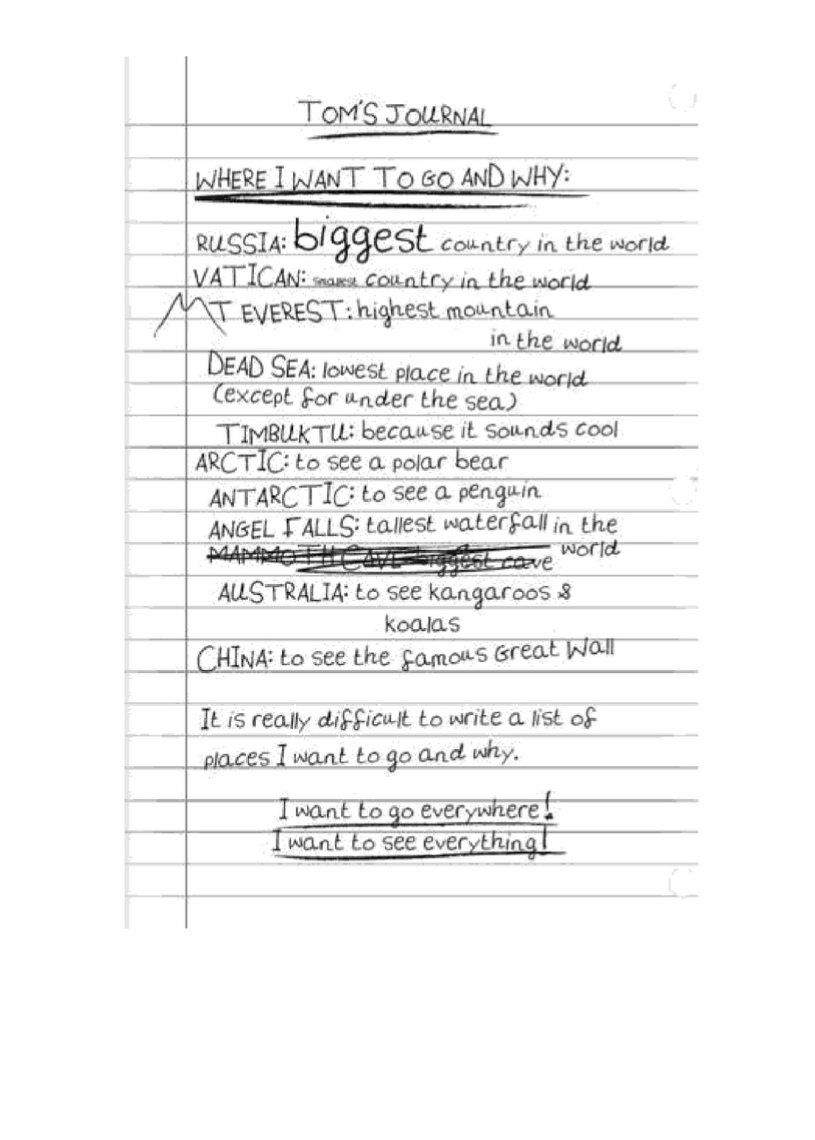 TOM'S JOURNAL
WHERE I WANT TO GO AND WHY:
RUSSIA: biggest country in the world
VATICAN: smallest country in the world
MT EVEREST: highest mountain
in the world
DEAD SEA: lowest place in the world
(except for under the sea)
TIMBUKTU: because it sounds cool
ARCTIC: to see a polar bear
ANTARCTIC: to see a penguin
ANGEL FALLS: tallest waterfall in the
world
MAMMOTH CAVE biggest cave
AUSTRALIA: to see kangaroos &
koalas
CHINA: to see the famous Great Wall
It is really difficult to write a list of
places I want to go and why.
I want to go everywhere!
I want to see everything!